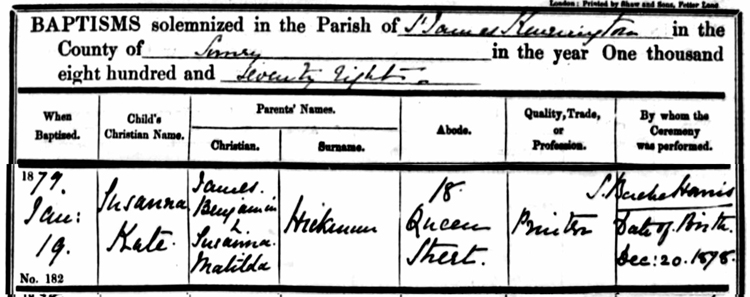 London: Printed by Shaw and Sons, Fetter Lane
BAPTISMS solemnized in the Parish of St James Kennington in the
County of Surrey in the year One thousand
eight hundred and Seventy eight
When Baptised.
Child's Christian Name.
Parents' Names.
Christian.
Surname.
Abode.
Quality, Trade, or Profession.
By whom the Ceremony was performed.
1879.
Jan:
19.
No. 182
Susanna
Kate.
James.
Benjamin
&
Susanna.
Matilda
Hickman
18.
Queen
Street.
Printer
S. Bache Harris
Date of Birth.
Dec: 20. 1878.